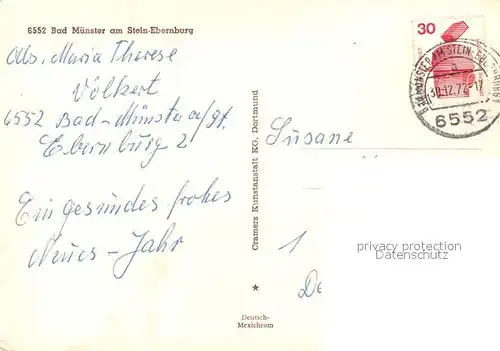 6552 Bad Münster am Stein-Ebernburg
Abs. Maria Therese
Volkert
6552 Bad-Münster a/St.
Ebernburg 2
Ein gesundes frohes
Neues-Jahr
Cramers Kunstanstalt KG, Dortmund
★
Deutsch-
Mexichrom
30
BAD MÜNSTER AM STEIN-EBERNBURG
a
30.12.74-17
6552
Susane
1
De
privacy protection
Datenschutz